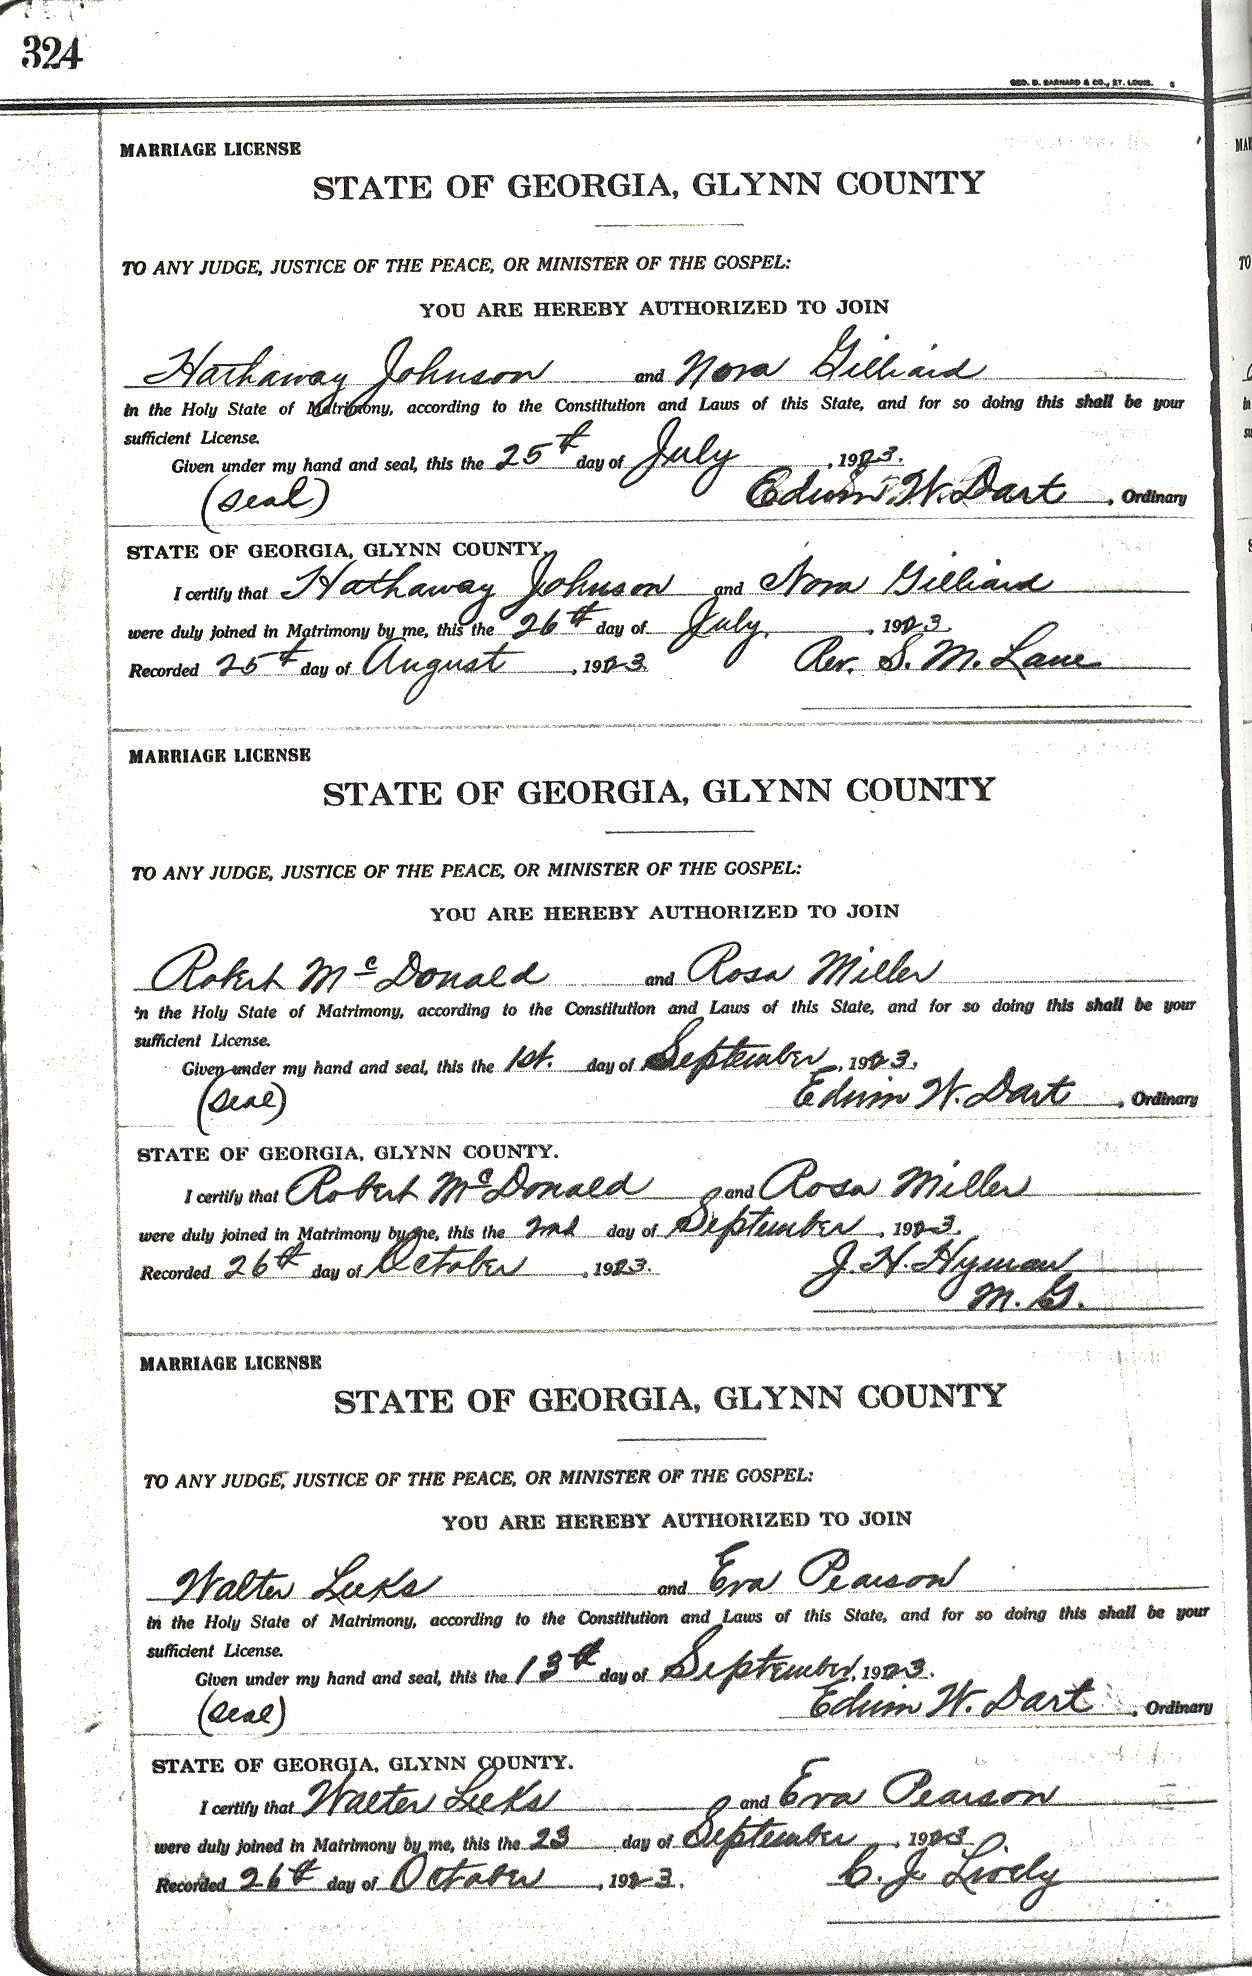 324
GEO. D. BARNARD & CO., ST. LOUIS.
MARRIAGE LICENSE
STATE OF GEORGIA, GLYNN COUNTY
TO ANY JUDGE, JUSTICE OF THE PEACE, OR MINISTER OF THE GOSPEL:
YOU ARE HEREBY AUTHORIZED TO JOIN
Hathaway Johnson and Nora Gilliard
in the Holy State of Matrimony, according to the Constitution and Laws of this State, and for so doing this shall be your
sufficient License.
Given under my hand and seal, this the 25th day of July, 1923.
(seal) Edwin W. Dart, Ordinary
STATE OF GEORGIA, GLYNN COUNTY.
I certify that Hathaway Johnson and Nora Gilliard
were duly joined in Matrimony by me, this the 26th day of July, 1923.
Recorded 25th day of August, 1923. Rev. S. M. Lane
MARRIAGE LICENSE
STATE OF GEORGIA, GLYNN COUNTY
TO ANY JUDGE, JUSTICE OF THE PEACE, OR MINISTER OF THE GOSPEL:
YOU ARE HEREBY AUTHORIZED TO JOIN
Robert McDonald and Rosa Miller
in the Holy State of Matrimony, according to the Constitution and Laws of this State, and for so doing this shall be your
sufficient License.
Given under my hand and seal, this the 1st. day of September, 1923.
(seal) Edwin W. Dart, Ordinary
STATE OF GEORGIA, GLYNN COUNTY.
I certify that Robert McDonald and Rosa Miller
were duly joined in Matrimony by me, this the 2nd day of September, 1923.
Recorded 26th day of October, 1923. J. H. Hyman
M. G.
MARRIAGE LICENSE
STATE OF GEORGIA, GLYNN COUNTY
TO ANY JUDGE, JUSTICE OF THE PEACE, OR MINISTER OF THE GOSPEL:
YOU ARE HEREBY AUTHORIZED TO JOIN
Walter Leeks and Eva Pearson
in the Holy State of Matrimony, according to the Constitution and Laws of this State, and for so doing this shall be your
sufficient License.
Given under my hand and seal, this the 13th day of September, 1923.
(seal) Edwin W. Dart, Ordinary
STATE OF GEORGIA, GLYNN COUNTY.
I certify that Walter Leeks and Eva Pearson
were duly joined in Matrimony by me, this the 23 day of September, 1923.
Recorded 26th day of October, 1923. C. J. Lively